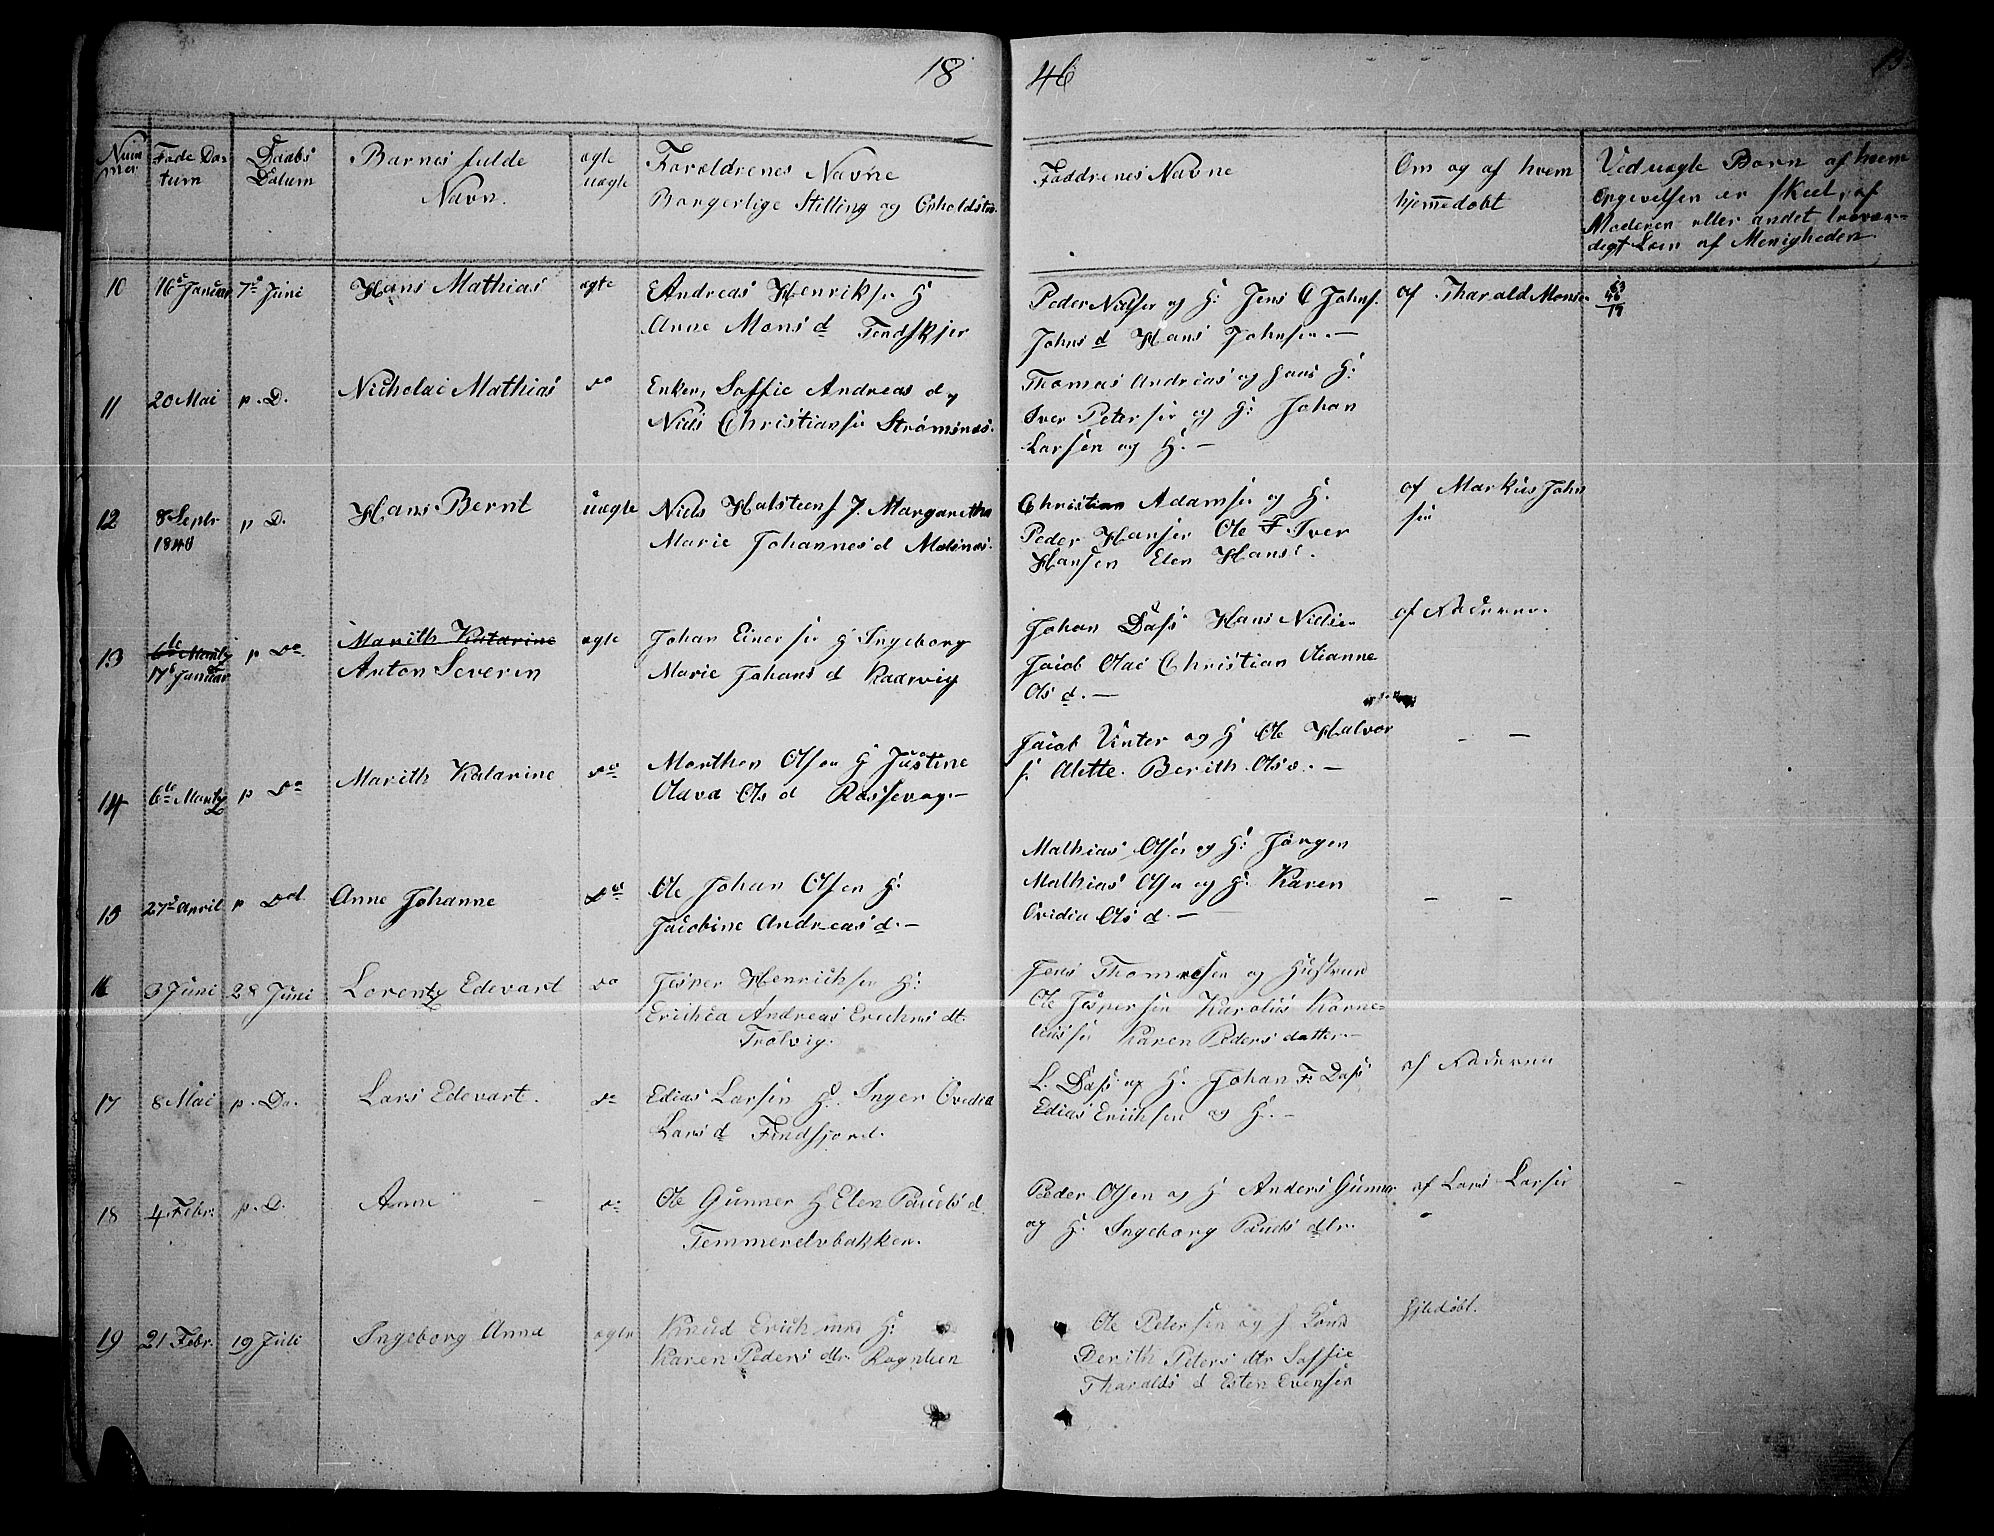 18 46
Num mer
Føde Datum
Daabs Datum
Barnes fulde Navn.
ægte uægte
Forældrenes Navne
Borgerlige Stilling og Opholdsted
Faddrenes Navne
Om og af hvem
hjemmedøbt
Ved uægte Børn af hvem
Opgivelsen er skeet, af
Moderen eller andet troværdigt Lem af Menigheden
10 16de Januar 7de Juni Hans Mathias ægte Andreas Henriksen H
Anne Monsd Findskjer
Peder Nielsen og H: Jens C Johns.
Johnsd Hans Johnsen. —
af Tharald Monsen
63
46
17
11 20 Mai p. D. Nicholai Mathias do Enken, Soffie Andreas d og
Niels Christiansen Strømsnes.
Thomas Andreas og Hans H:
Iver Petersen og H: Johan
Larsen og H. —
12 8 Septr p D. Hans Bernt uægte Niels Halsteens J. Margaretha
Marie Johannesd Molsnes.
Christian Adamsen og H.
Peder Hansen Ole F Iver
Hansen Elen Hans.
af Markus John
sen
13 17de Januar p Do Marith Katarine
Anton Severin ægte Johan Einersen H Ingeborg
Marie Johans d Kaarvig
Johan Dass Hans Nielsen
Jacob Olai Christian Olianne
Ols d. —
af Faderen.
14 6te Martz p Do Marith Katarine do Morthen Olsen H Justine
Olava Ols d Rossevog. —
Jacob Vinter og H Ole Halvor
s. Olette. Berith Olsd. —
— —
15 27de April p Dd Anne Johanne Do Ole Johan Olsen H:
Jacobine Andreas d. —
Mathias Olsen og H: Jørgen
Mathias Olsen og H: Karen
Ovidia Ols d. —
— —
16 3 Juni 28 Juni Lorentz Edevart do Jesper Henrichsen H:
Erichia Andreas Erichs dt.
Trolvig.
Jens Thomesen og Hustrue
Ole Jespersen Karolus Kornelius sen Karen Pedersdatter —
17 8 Mai p. Do. Lars Edevart. do Edias Larsen H: Inger Ovidia
Lars d Findfjord.
L. Dass og H. Johan F: Dass
Edias Erichsen og H. —
af Faderen
18 4 Febr. p. D. Anne do Ole Gunner H Elen Pauels d.
Temmerelvbakken.
Peder Olsen og H Anders Gunner
og H. Ingeborg Pauels dtr.
af Lars Larsen
19 21 Febr. 19 Juli Ingeborg Anna ægte Knud Erich H:
Karen Peders dtr. Rognlien
Ole Petersen og H
Berith Peters dtr Soffie
Tharalds d Esten Evensen
hjdøbt.